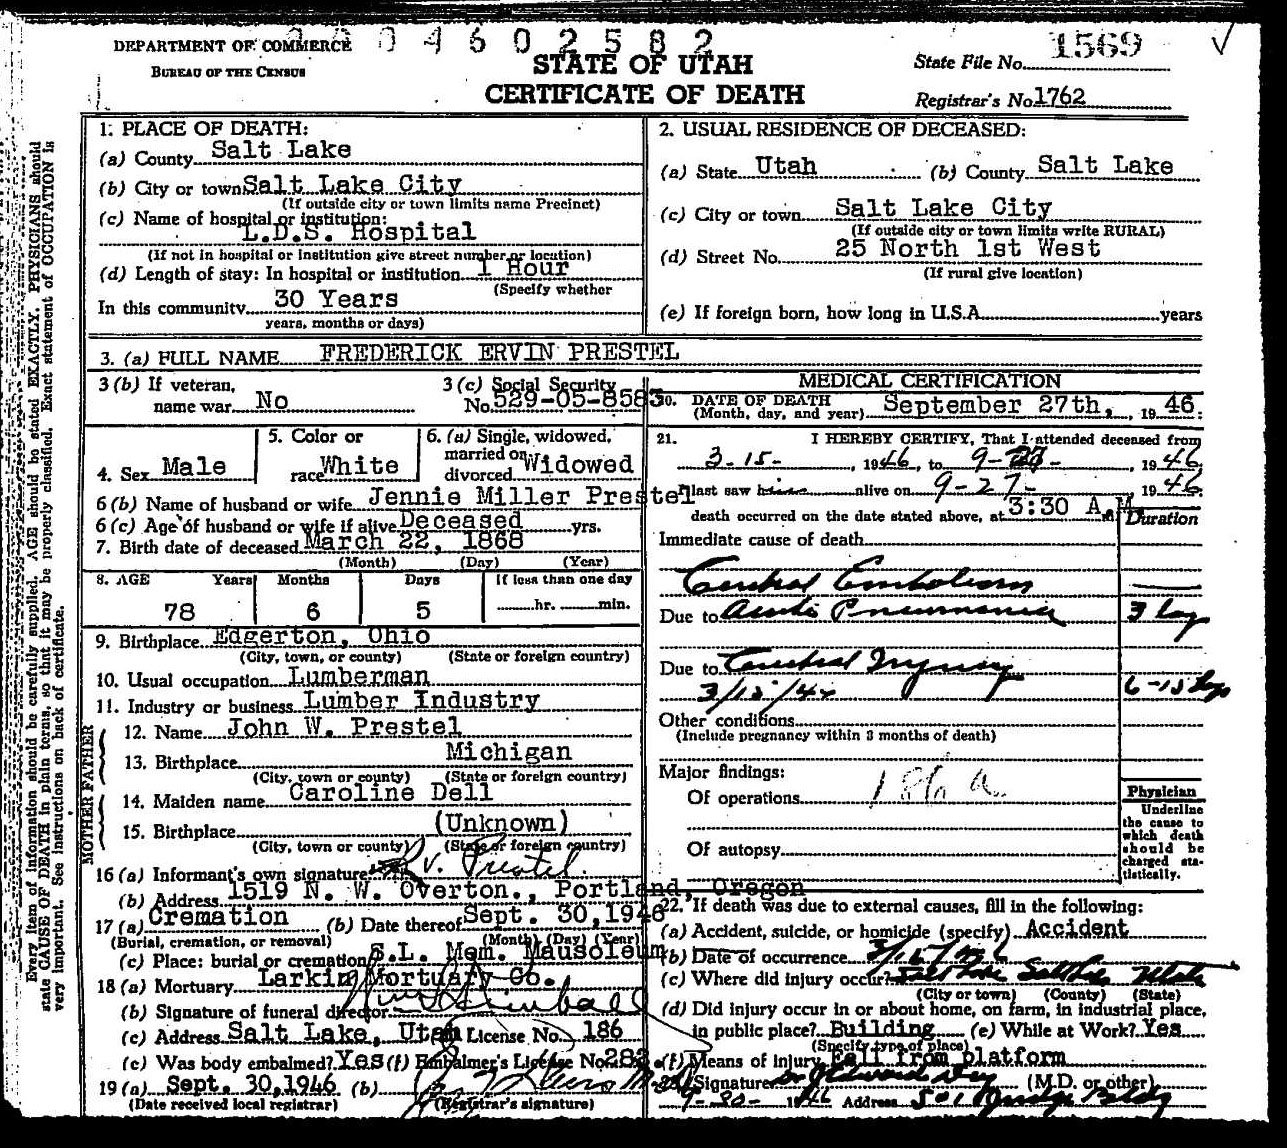 DEPARTMENT OF COMMERCE
BUREAU OF THE CENSUS
4602582
STATE OF UTAH
CERTIFICATE OF DEATH
State File No. 1569
Registrar's No. 1762
Every item of information should be carefully supplied. AGE should be stated EXACTLY. PHYSICIANS should
state CAUSE OF DEATH in plain terms, so that it may be properly classified. Exact statement of OCCUPATION is
very important. See instructions on back of certificate.
1. PLACE OF DEATH:
(a) County Salt Lake
(b) City or town Salt Lake City
(If outside city or town limits name Precinct)
(c) Name of hospital or institution:
L.D.S. Hospital
(If not in hospital or institution give street number or location)
(d) Length of stay: In hospital or institution 1 Hour
(Specify whether
In this community 30 Years
years, months or days)
2. USUAL RESIDENCE OF DECEASED:
(a) State Utah (b) County Salt Lake
(c) City or town Salt Lake City
(If outside city or town limits write RURAL)
(d) Street No. 25 North 1st West
(If rural give location)
(e) If foreign born, how long in U.S.A. years
3. (a) FULL NAME FREDERICK ERVIN PRESTEL
3 (b) If veteran,
name war No
3 (c) Social Security
No. 529-05-8583
4. Sex Male
5. Color or
race White
6. (a) Single, widowed,
married or
divorced Widowed
6 (b) Name of husband or wife Jennie Miller Prestel
6 (c) Age of husband or wife if alive Deceased yrs.
7. Birth date of deceased March 22, 1868
(Month) (Day) (Year)
8. AGE Years Months Days If less than one day
78 6 5 hr. min.
9. Birthplace Edgerton, Ohio
(City, town, or county) (State or foreign country)
10. Usual occupation Lumberman
11. Industry or business Lumber Industry
FATHER
12. Name John W. Prestel
13. Birthplace Michigan
(City, town or county) (State or foreign country)
MOTHER
14. Maiden name Caroline Dell
15. Birthplace (Unknown)
(City, town or county) (State or foreign country)
16 (a) Informant's own signature R.V. Prestel
(b) Address 1519 N. W. Overton., Portland, Oregon
17 (a) Cremation (b) Date thereof Sept. 30,1946
(Burial, cremation, or removal) (Month) (Day) (Year)
(c) Place: burial or cremation S.L. Mem. Mausoleum
18 (a) Mortuary Larkin Mortuary Co.
(b) Signature of funeral director
(c) Address Salt Lake, Utah License No. 186
(e) Was body embalmed? Yes (f) Embalmer's License No. 283.
19 (a) Sept. 30,1946 (b)
(Date received local registrar) (Registrar's signature)
MEDICAL CERTIFICATION
20. DATE OF DEATH
(Month, day, and year) September 27th, 1946.
21. I HEREBY CERTIFY, That I attended deceased from
3-15-, 1946, to 9-27-, 1946
I last saw him alive on 9-27- 1946
death occurred on the date stated above, at 3:30 A.M.
Duration
Immediate cause of death
Cerebral Embolism
Due to Acute Pneumonia 3 day
Due to Cerebral Injury
3/15/46
Other conditions
(Include pregnancy within 3 months of death)
Major findings:
Of operations 186 a
Of autopsy
Physician
Underline
the cause to
which death
should be
charged sta-
tistically.
22. If death was due to external causes, fill in the following:
(a) Accident, suicide, or homicide (specify) Accident
(b) Date of occurrence 3/15/46
(c) Where did injury occur? Salt Lake Salt Lake Utah
(City or town) (County) (State)
(d) Did injury occur in or about home, on farm, in industrial place,
in public place? Building (e) While at Work? Yes
(Specify type of place)
(f) Means of injury Fall from platform
23. Signature (M.D. or other)
9-30-1946 Address 501 Judge Bldg